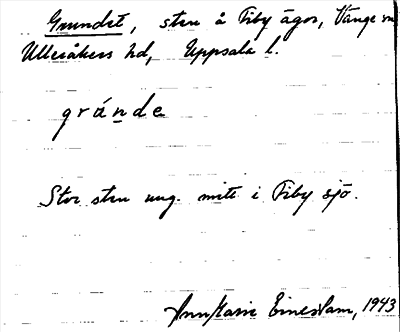 Grundet, sten å Fiby ägor, Vänge sn
Ulleråkers hd, Uppsala l.
grånde
Stor sten ung. mitt i Fiby sjö.
AnnMarie 1943